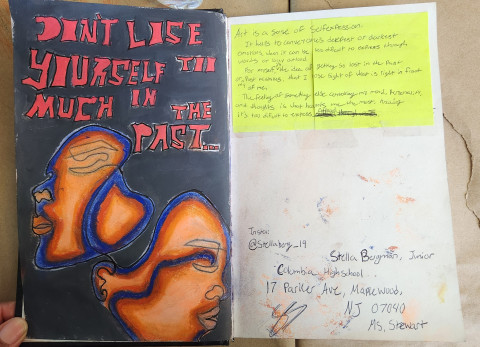 DON'T LOSE
YOURSELF TOO
MUCH IN
THE
PAST...
Art is a sense of self expression.
It helps to convey one's darkest or deepest
emotions when it can be too difficult to express through
words or only actions.
For myself, the idea of getting so lost in the past
or that nothing, that I lose sight of what is right in front
of me.
The feeling of something else consuming my mind,
and thoughts is what haunts me the most. Having
it's too difficult to express
Insta:
@Stellaberg_19
Stella Bergman, Junior
Columbia High school
17 Parker Ave, Maplewood,
NJ 07040
Ms. Stewart